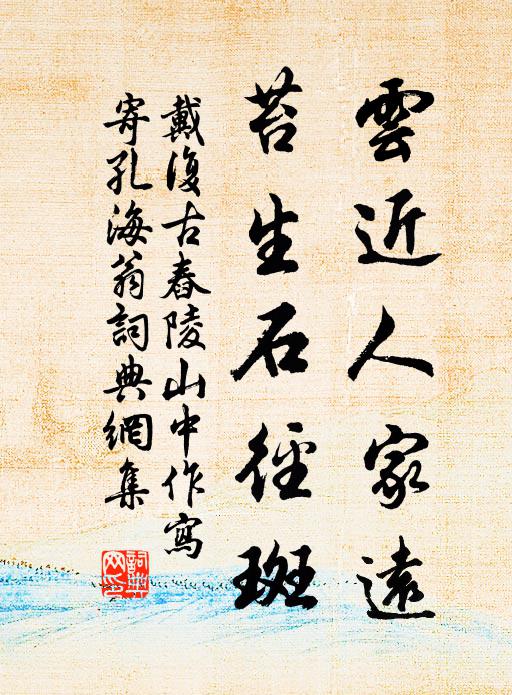 雲近人家遠
苔生石徑斑
戴復古舂陵山中作寫
寄孔海翁詞典網集
詞典网气